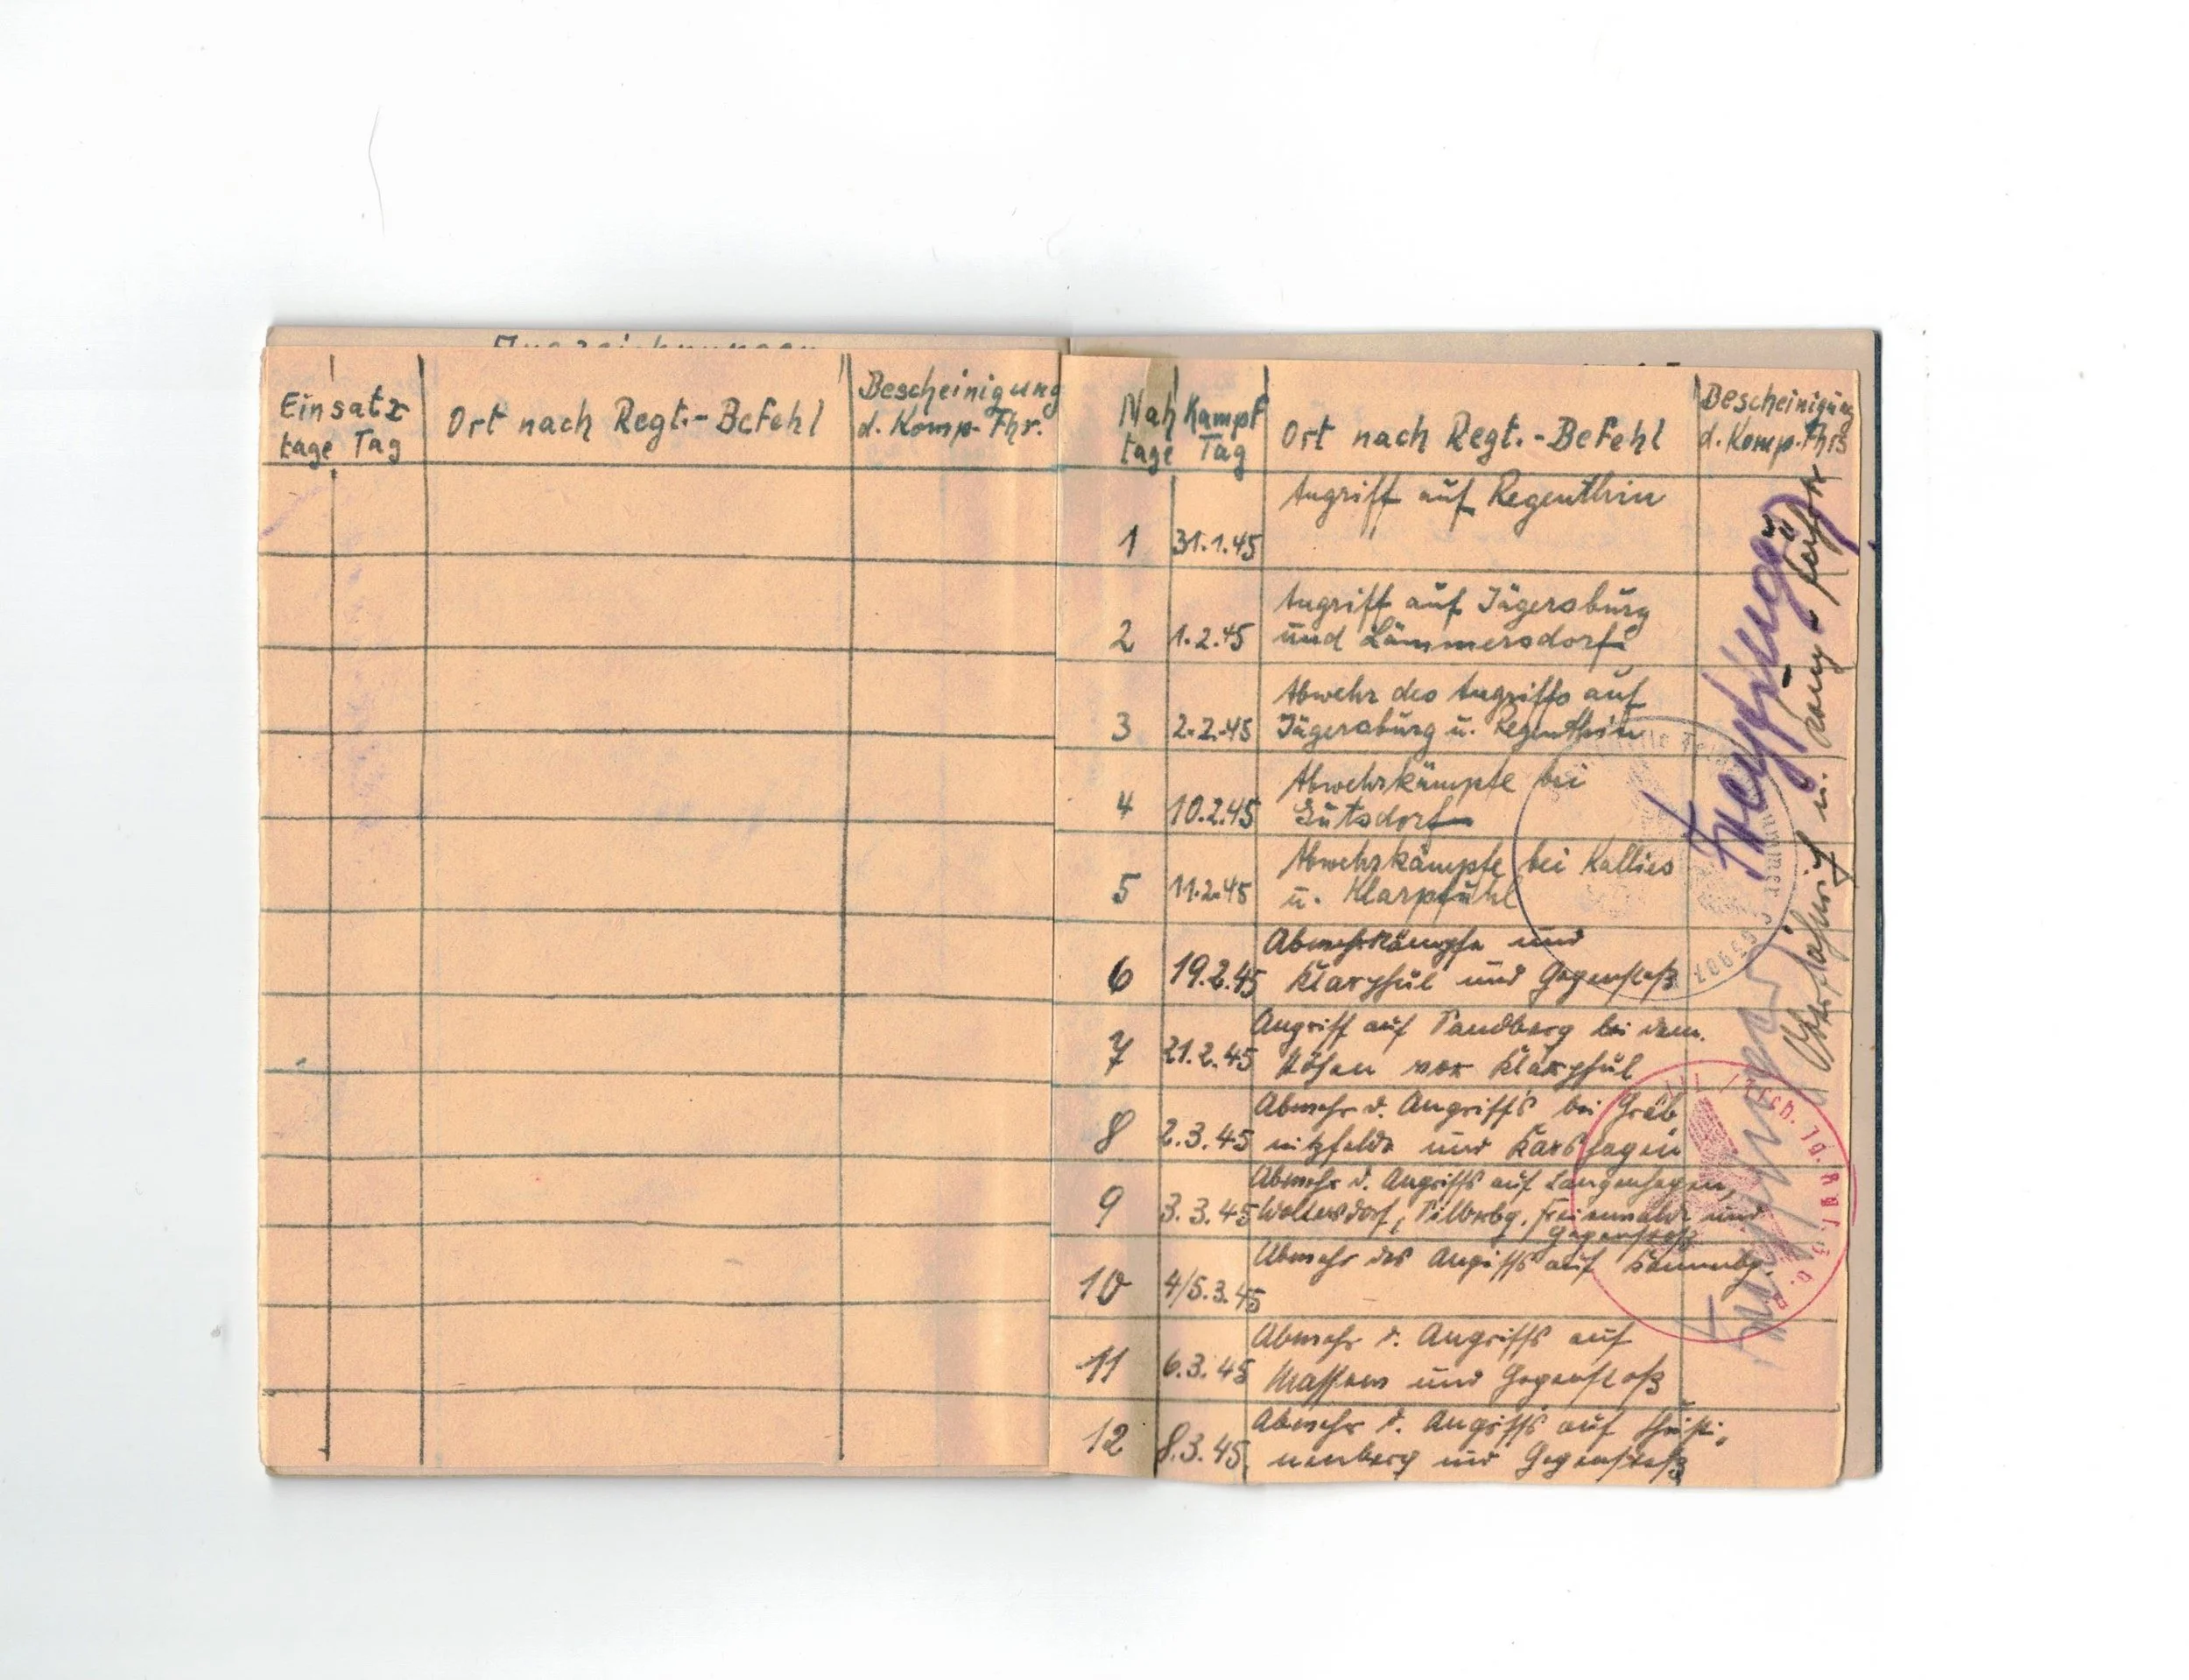 Einsatz
tage Tag
Ort nach Regt.-Befehl
Bescheinigung
d. Komp.-Fhr.
Nah Kampf
tage Tag
Ort nach Regt.-Befehl
Bescheinigung
d. Komp.-Fhrs
1 31.1.45 Angriff auf Regenthin
2 1.2.45 Angriff auf Jägersburg
und Lämmersdorf
3 2.2.45 Abwehr des Angriffs auf
Jägersburg u. Regenthin
4 10.2.45 Abwehrkämpfe bei
Gutsdorf
5 11.2.45 Abwehrkämpfe bei Kallies
u. Klarpfuhl
6 19.2.45 Abwehrkämpfe und
Klarpfül und Gegenstoß
7 21.2.45 Angriff auf Sandberg bei dem
Höhen vor Klarpfül
8 2.3.45 Abwehr d. Angriffs bei Gräb
nitzfelde und Karshagen
9 3.3.45 Abwehr d. Angriffs auf Langenhagen,
Woltersdorf, Silberbg. Freienwalde und
Gegenstoß
10 4/5.3.45 Abwehr des Angriffs auf
11 6.3.45 Abwehr d. Angriffs auf
Massow und Gegenstoß
12 8.3.45 Abwehr d. Angriffs auf
und Gegenstoß
Oberfähnrich u.
65907